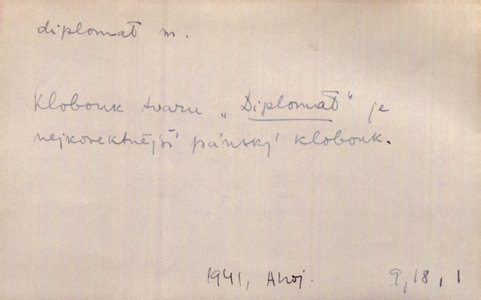 diplomat m.
Klobouk tvaru „Diplomat“ je
nejkorektnější pánský klobouk.
1941, Ahoj.
9,18,1